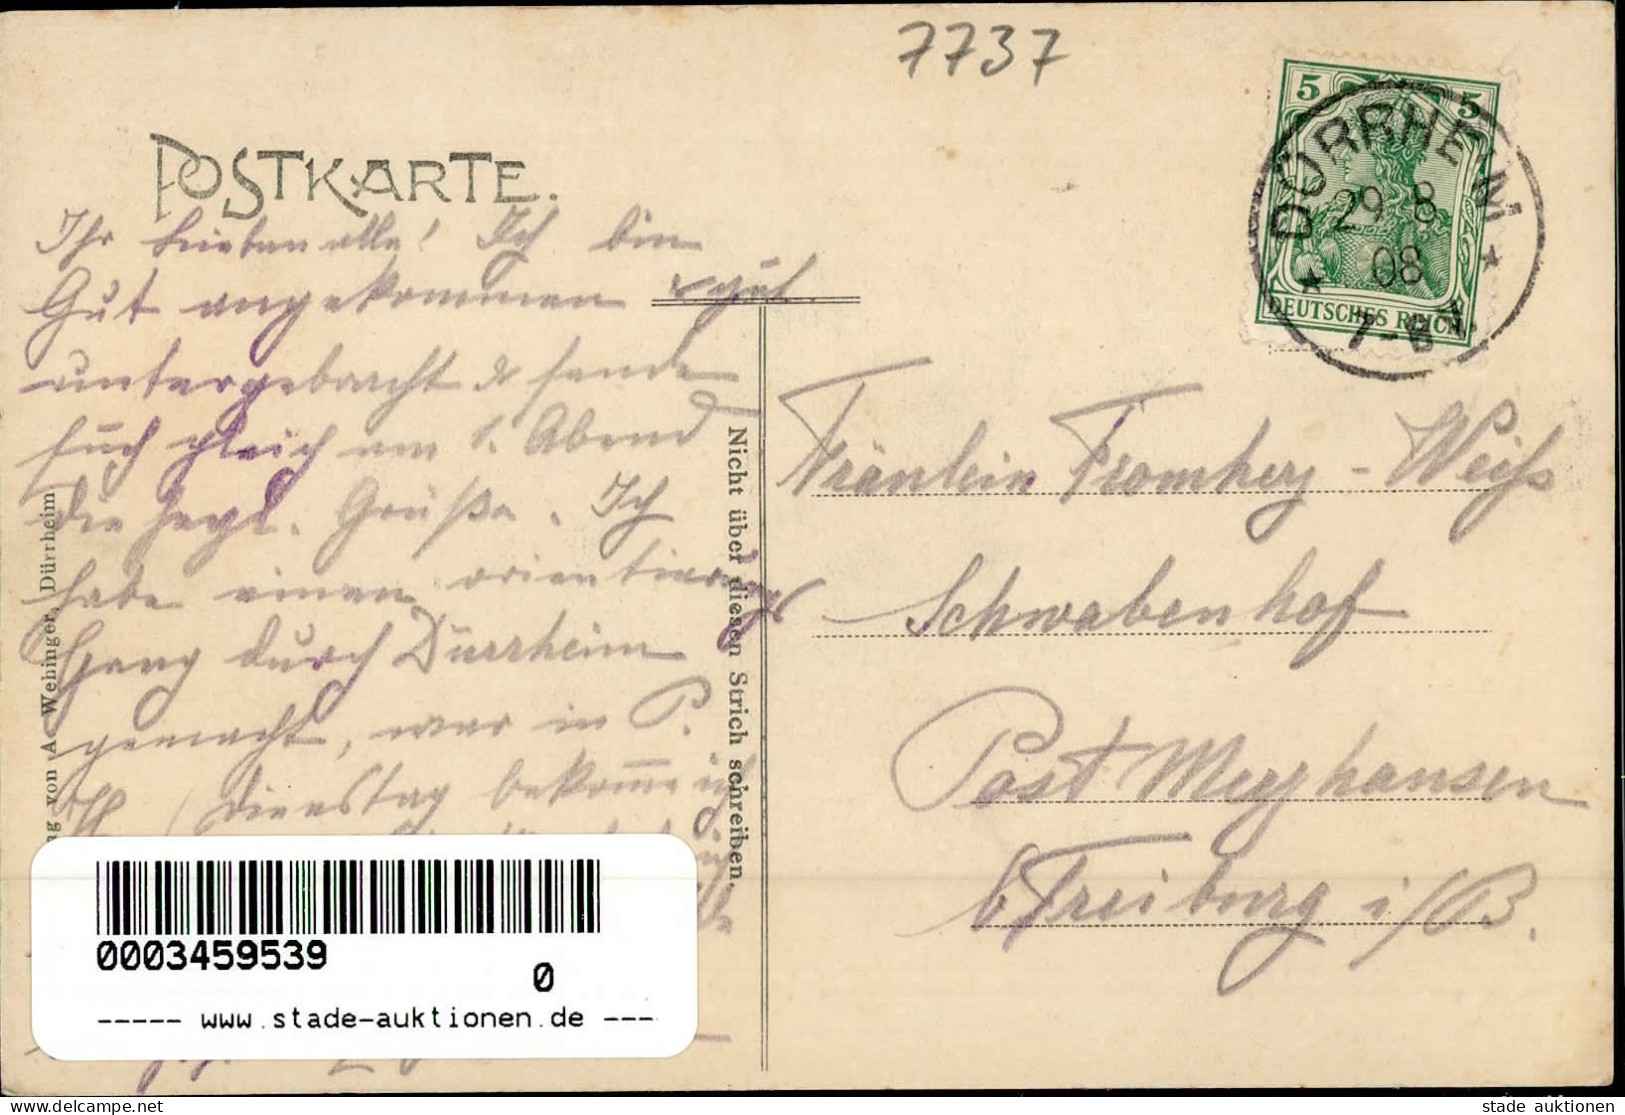 7737
POSTKARTE.
5 5
DEUTSCHES REICH
DÜRRHEIM
29 8
08
7-8
Ihr Lieben alle! Ich bin
Gut angekommen & gut
untergebracht & sende
Euch gleich am 1. Abend
die herzl. Grüße. Ich
habe einen orientierungs
Gang durch Dürrheim
gemacht, war in P.
Dienstag bekomme ich
Nicht über diesen Strich schreiben.
von A. Wehinger, Dürrheim
Fräulein Fromherz-Weiß
Schwabenhof
Post Merzhausen
b/Freiburg i/B.
0003459539
0
----- www.stade-auktionen.de ---
delcampe.net
stade auktionen